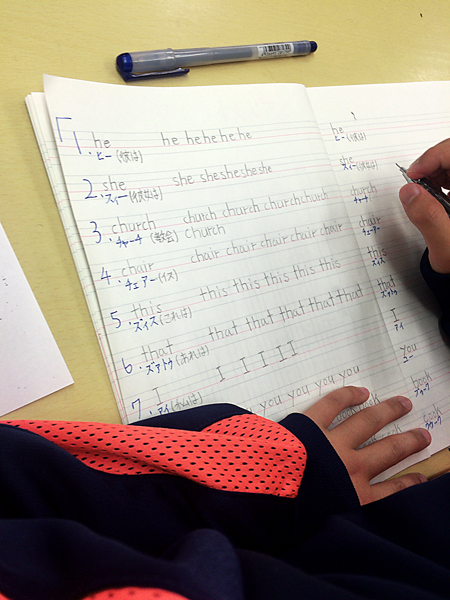 1. he he he he he he
ヒー (彼は)
2. she she she she she she
スィー (彼女は)
3. church church church church church
チャーチ (教会) church
4. chair chair chair chair chair chair
チェアー (イス)
5. this this this this this this
ズィス (これは)
6. that that that that that that
ズァトゥ (あれは)
7. I I I I I I
アイ (私は)
you you you you
he
ヒー (彼は)
she
スィー (彼女は)
church
チャーチ
chair
チェアー
this
ズィス
that
ズァトゥ
I
アイ
you
ユー
book
ブゥーク